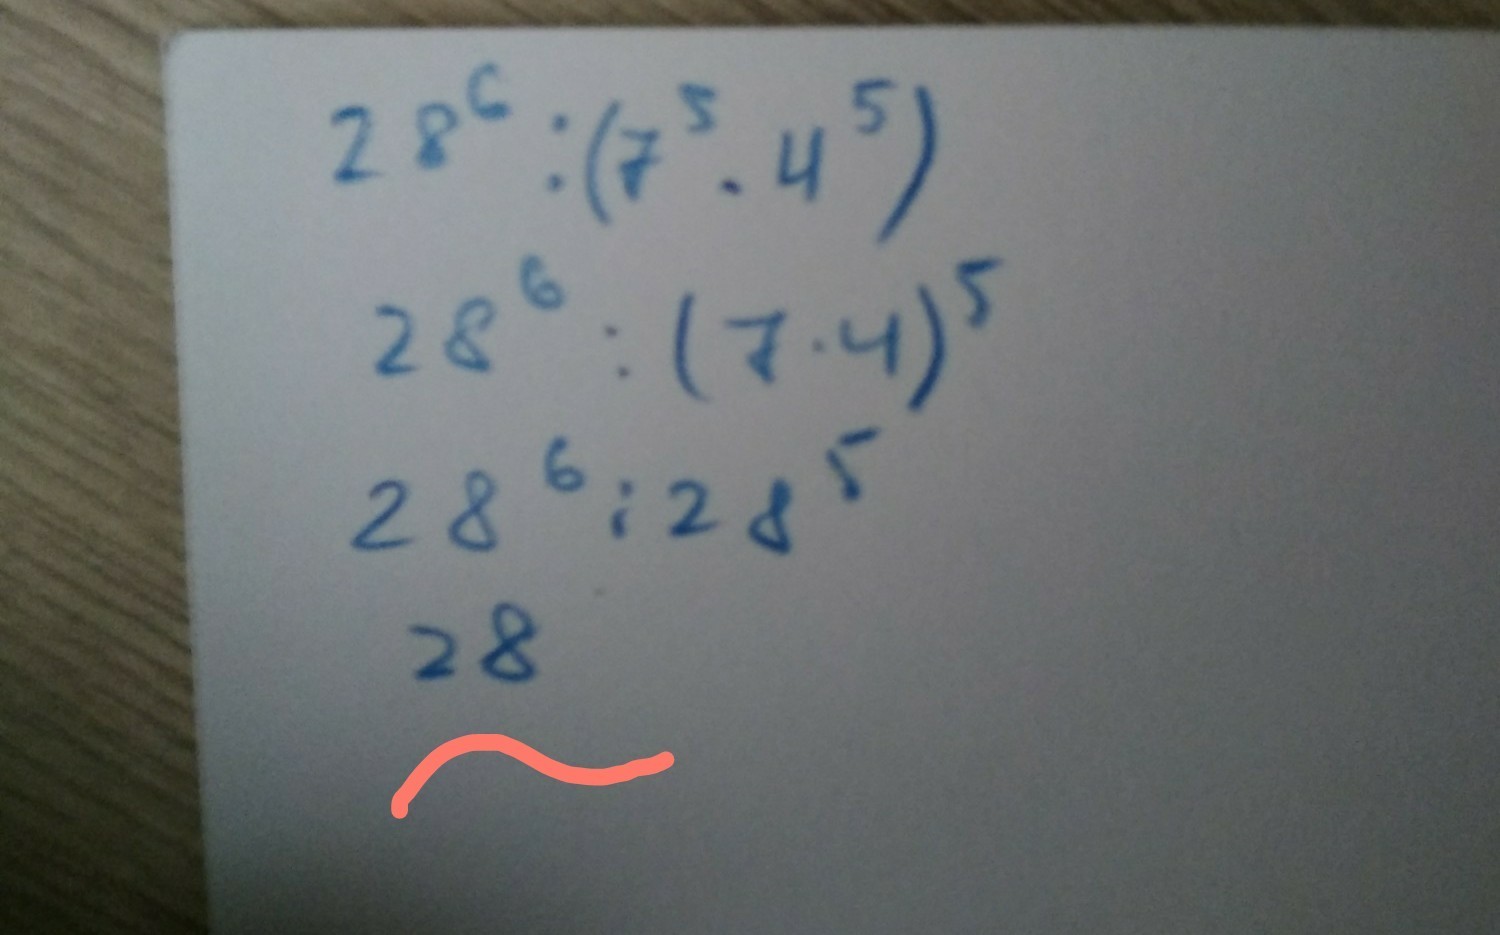 28⁶ : (7⁵ . 4⁵)
28⁶ : (7 · 4)⁵
28⁶ : 28⁵
28